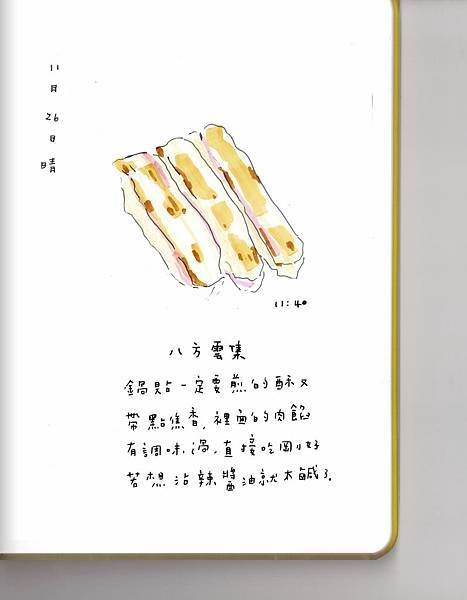 11月26日晴
11:40
八方雲集
鍋貼一定要煎的酥又
帶點焦香,裡面的肉餡
有調味過,直接吃剛好
若想沾辣醬油就太鹹了.